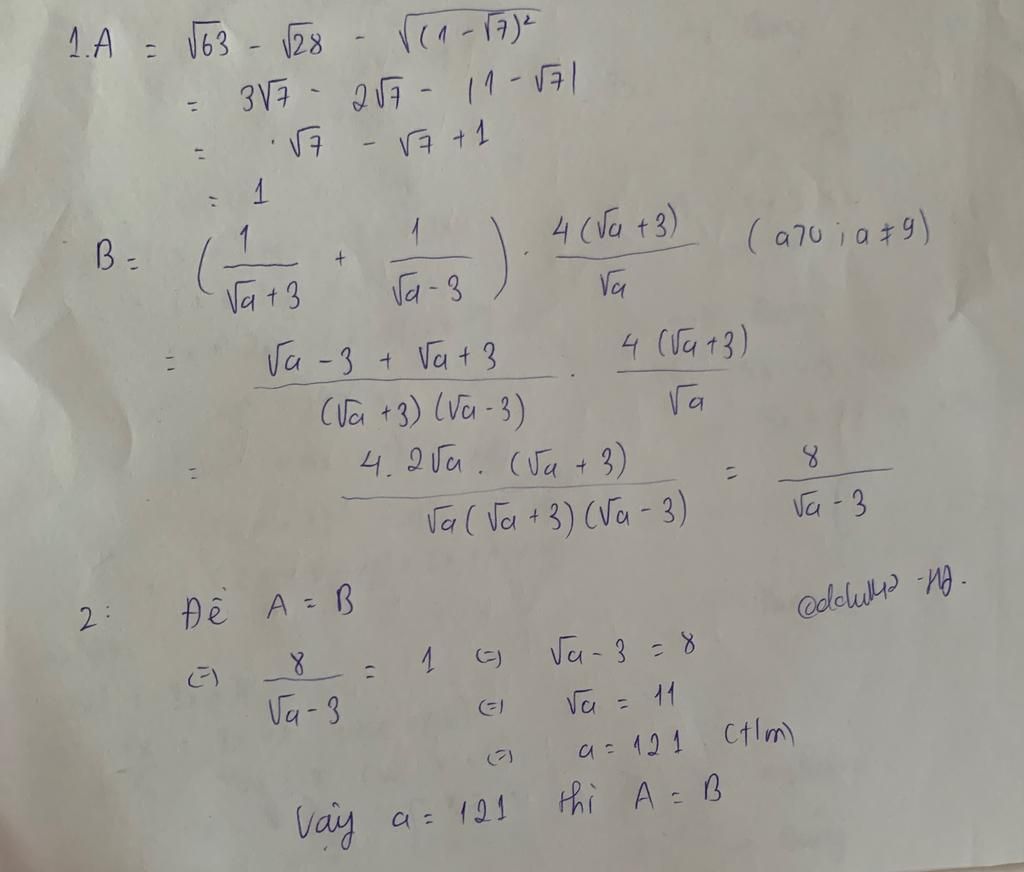 1. A = √63 - √28 - √(1 - √7)²
= 3√7 - 2√7 - |1 - √7|
= √7 - √7 + 1
= 1
B = (1/(√a + 3) + 1/(√a - 3)) . 4(√a + 3)/√a (a>0 ; a ≠ 9)
= (√a - 3 + √a + 3)/((√a + 3)(√a - 3)) . 4(√a + 3)/√a
= 4.2√a.(√a + 3)/(√a(√a + 3)(√a - 3)) = 8/(√a - 3)
2: Để A = B
(=) 8/(√a - 3) = 1 (=) √a - 3 = 8
(=) √a = 11
(=) a = 121 (t/m)
Vậy a = 121 thì A = B